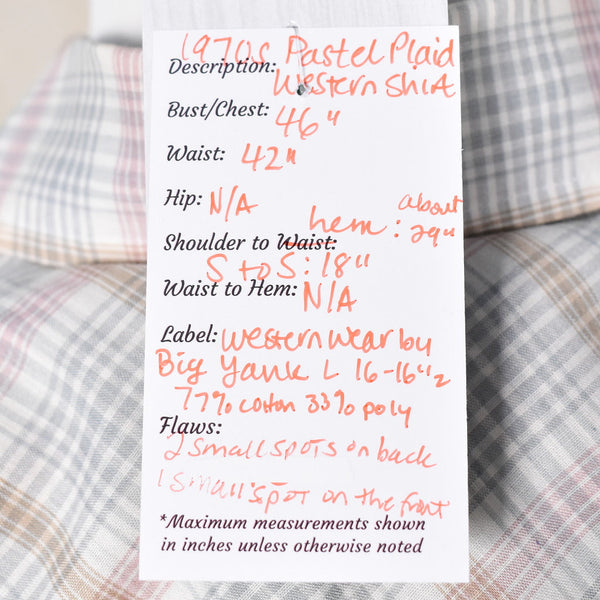 1970s Pastel Plaid
Description: Western Shirt
Bust/Chest: 46"
Waist: 42"
Hip: N/A
Shoulder to Waist: hem: about 29"
S to S: 18"
Waist to Hem: N/A
Label: Western wear by
Big Yank L 16-16 1/2
77% cotton 33% poly
Flaws:
2 small spots on back
1 small spot on the front
*Maximum measurements shown
in inches unless otherwise noted